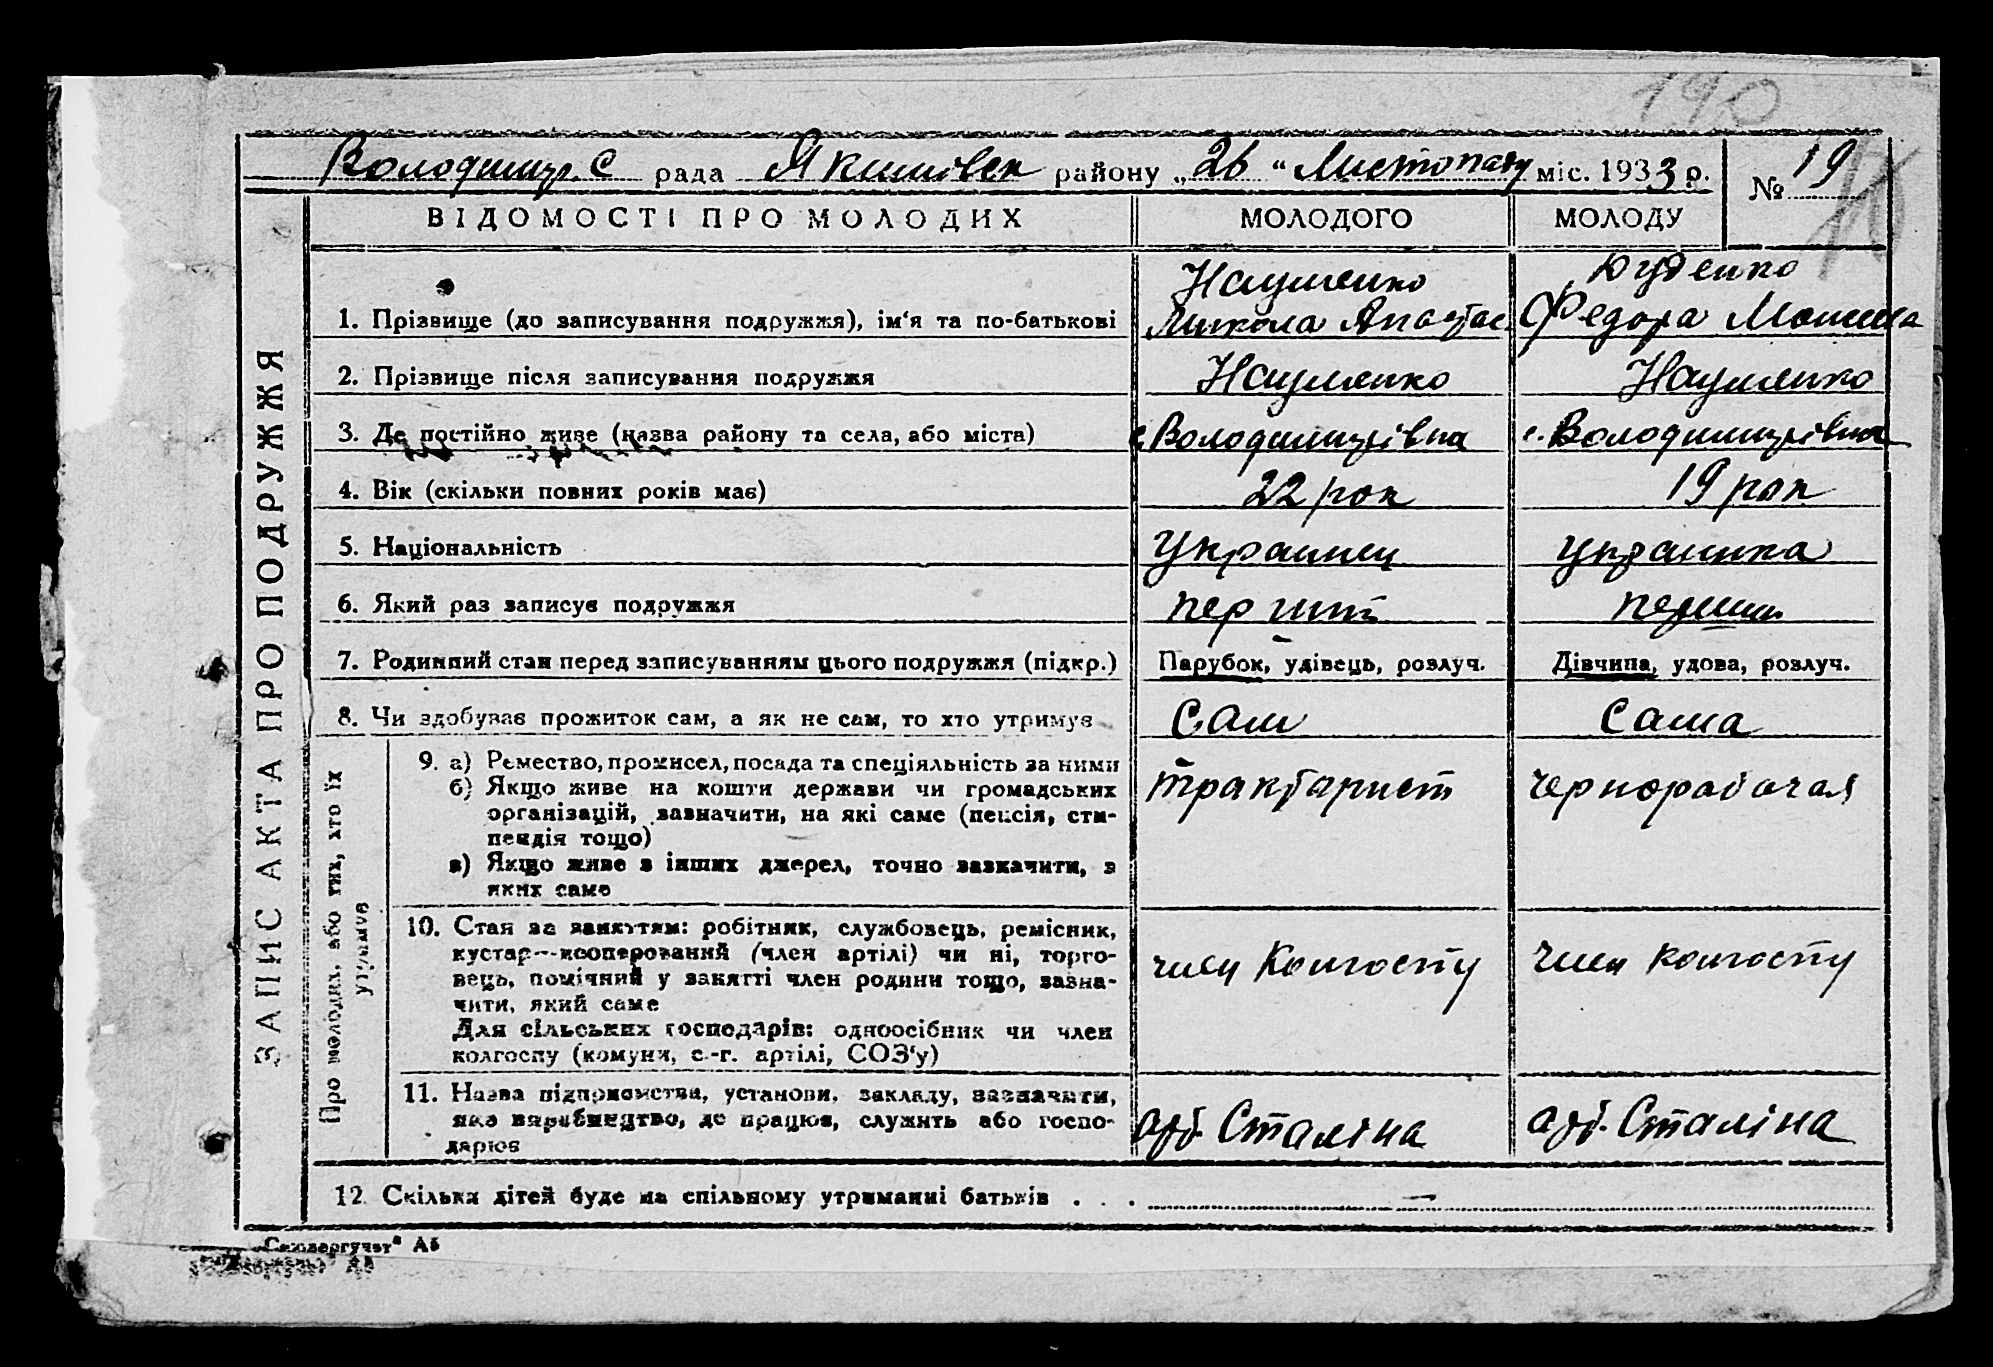 190
Володимир. С рада Якимівск району „26“ Листопаду міс. 1933 р. № 19
ВІДОМОСТІ ПРО МОЛОДИХ МОЛОДОГО МОЛОДУ
ЗАПИС АКТА ПРО ПОДРУЖЖЯ
Науменко
1. Прізвище (до записування подружжя), ім‘я та по-батькові Микола Федора
2. Прізвище після записування подружжя Науменко Науменко
3. Де постійно живе (назва району та села, або міста) с. Володимирівка с. Володимирівка
4. Вік (скільки повних років має) 22 рок 19 рок
5. Національність Украинец Украинка
6. Який раз записує подружжя перший перший
7. Родинний стан перед записуванням цього подружжя (підкр.) Парубок, удівець, розлуч. Дівчина, удова, розлуч.
8. Чи здобував прожиток сам, а як не сам, то хто утримує Сам Сама
Про молодих, або тих, хто їх
утримує
9. а) Ремество, промисел, посада та спеціяльність за ними трактарист чернорабочая
б) Якщо живе на кошти держави чи громадських
організацій, зазначити, на які саме (пенсія, сти-
пендія тощо)
в) Якщо живе з інших джерел, точно зазначити, з
яких саме
10. Стан за заняттям: робітник, службовець, ремісник,
кустар—кооперований (член артілі) чи ні, торго- член Колгоспу член колгоспу
вець, помічний у занятті член родини тощо, зазна-
чити, який саме
Для сільських господарів: одноосібник чи член
колгоспу (комуни, с.-г. артілі, СОЗ‘у)
11. Назва підприємства, установи, закладу, зазначити,
яке виробництво, де працює, служить або госпо- Сталіна Сталіна
дарює
12. Скільки дітей буде на спільному утриманні батьків . . . —